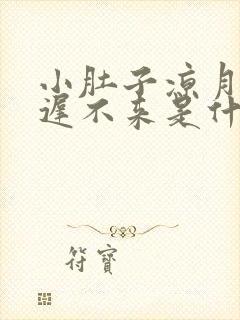 小肚子凉月
迟不来是什
符寶